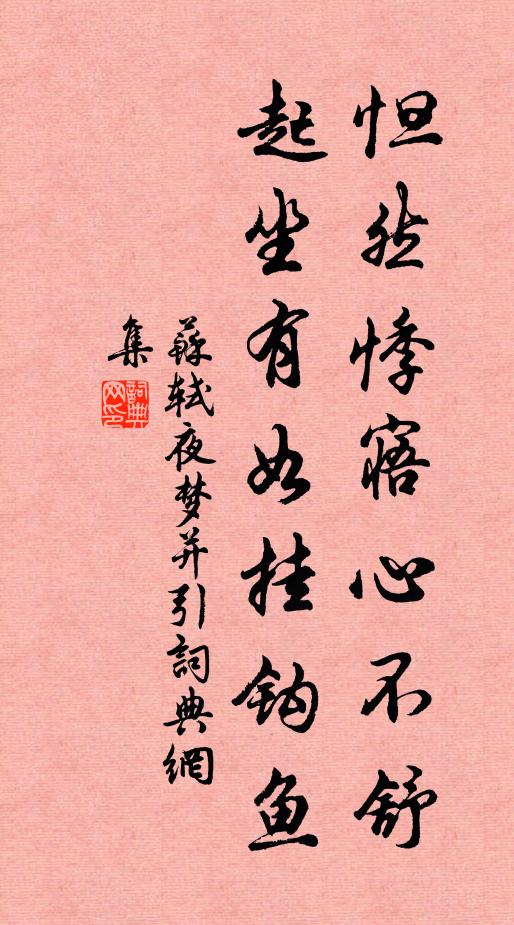 怛然悸寤心不舒
起坐有如挂钩鱼
蘇轼夜梦并引詞典網
集
詞典網印